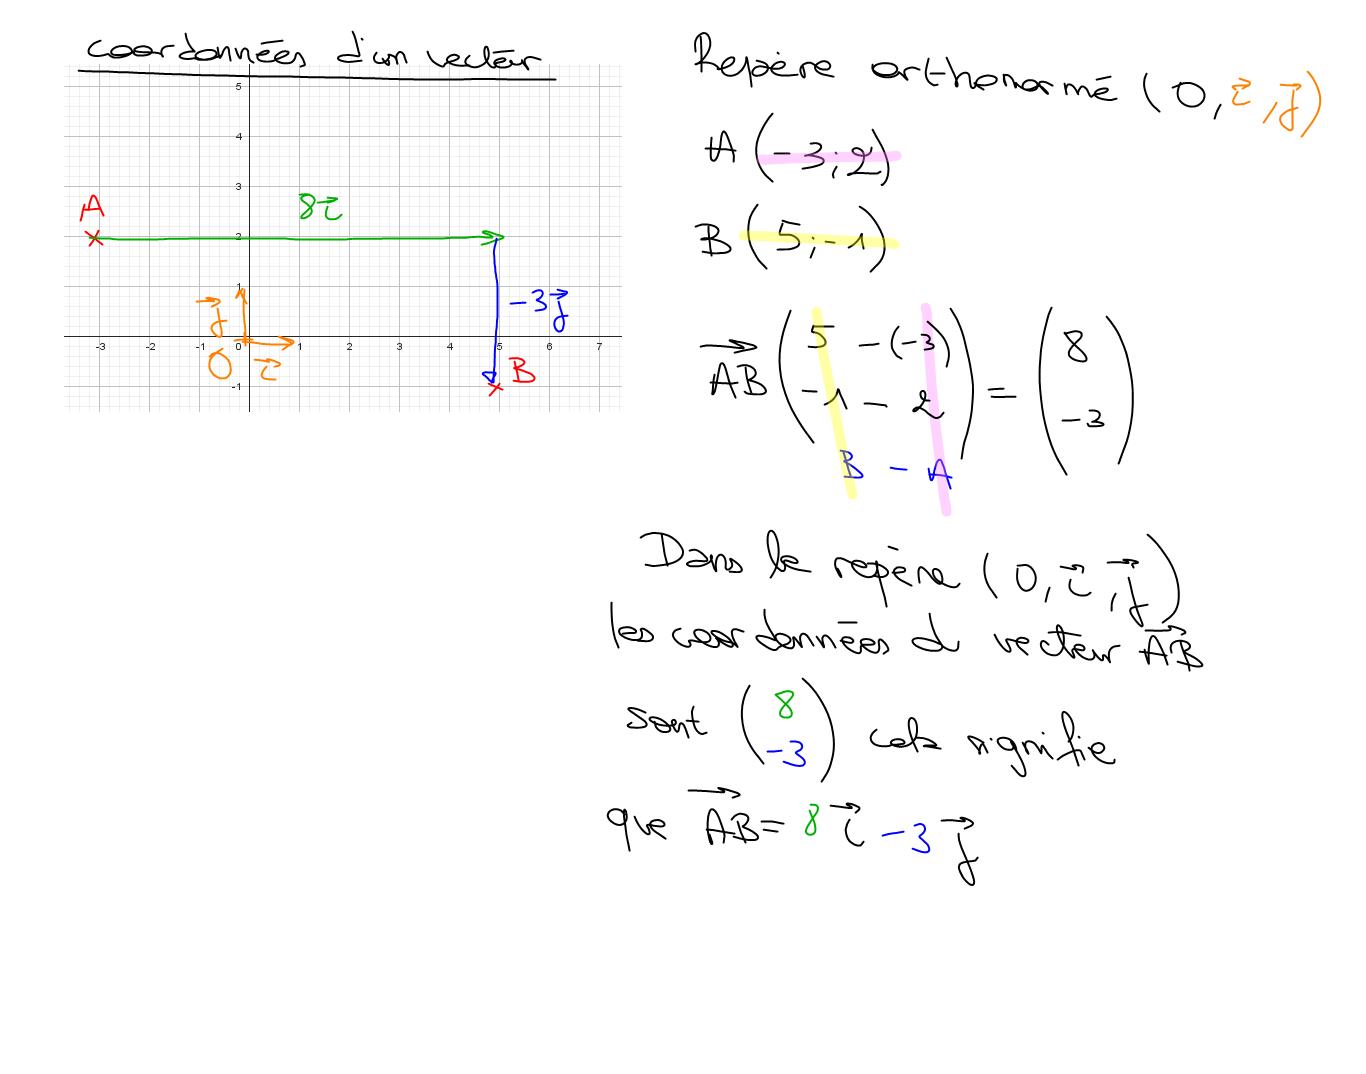 coordonnées d'un vecteur
5
4
3
2
1
-1
-3 -2 -1 0 1 2 3 4 5 6 7
A
8i⃗
-3j⃗
j⃗
O i⃗
B
Repère orthonormé (O, i⃗, j⃗)
A (-3; 2)
B (5; -1)
AB⃗ (5 - (-3)
-1 - 2) = (8
-3)
B - A
Dans le repère (O, i⃗, j⃗)
les coordonnées du vecteur AB⃗
sont (8
-3) cela signifie
que AB⃗ = 8i⃗ - 3j⃗